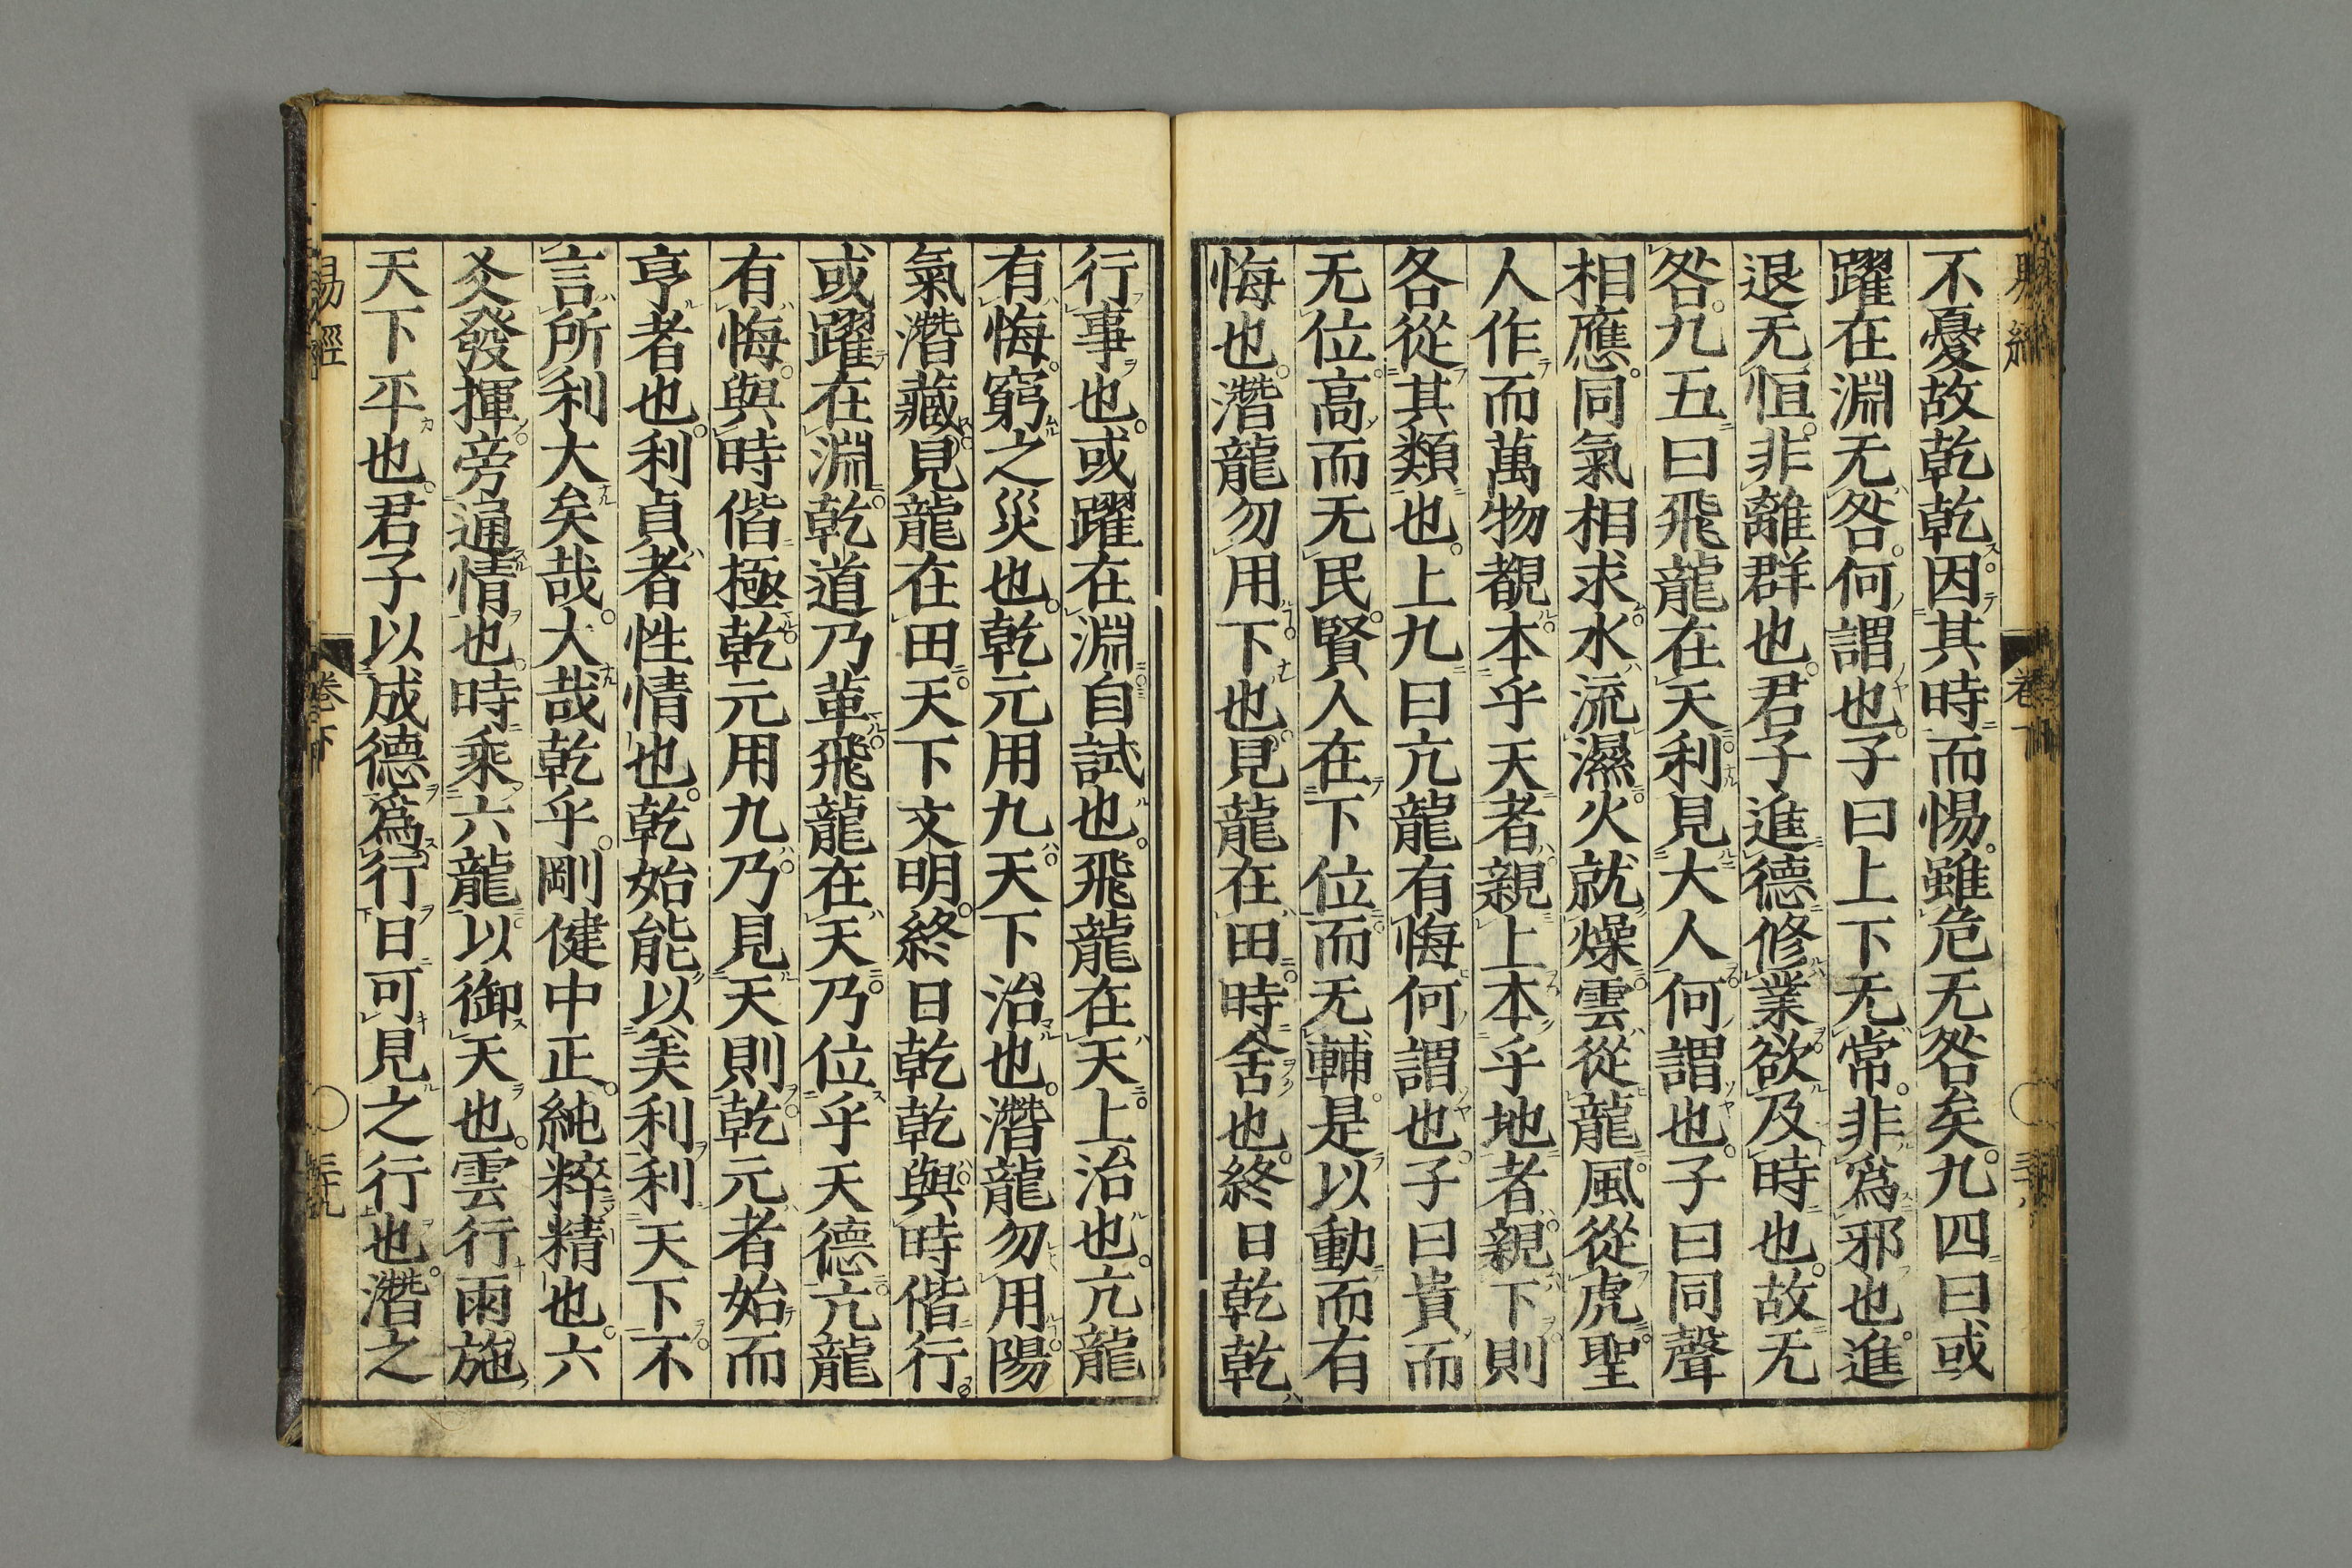 不憂故乾乾因其時而惕雖危无咎矣九四曰或
躍在淵无咎何謂也子曰上下无常非爲邪也進
退无恒非離群也君子進德修業欲及時也故无
咎九五曰飛龍在天利見大人何謂也子曰同聲
相應同氣相求水流濕火就燥雲從龍風從虎聖
人作而萬物覩本乎天者親上本乎地者親下則
各從其類也上九曰亢龍有悔何謂也子曰貴而
无位高而无民賢人在下位而无輔是以動而有
悔也潛龍勿用下也見龍在田時舍也終日乾乾
行事也或躍在淵自試也飛龍在天上治也亢龍
有悔窮之災也乾元用九天下治也潛龍勿用陽
氣潛藏見龍在田天下文明終日乾乾與時偕行
或躍在淵乾道乃革飛龍在天乃位乎天德亢龍
有悔與時偕極乾元用九乃見天則乾元者始而
亨者也利貞者性情也乾始能以美利利天下不
言所利大矣哉大哉乾乎剛健中正純粹精也六
爻發揮旁通情也時乘六龍以御天也雲行雨施
天下平也君子以成德爲行日可見之行也潛之
易經 卷下